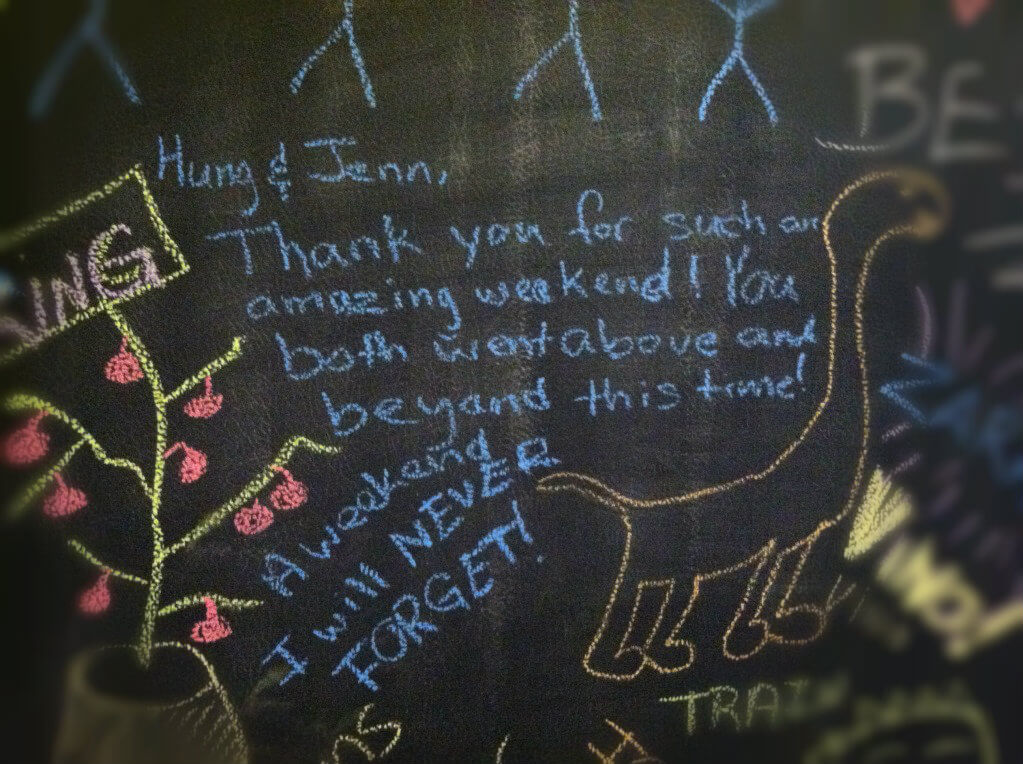 BE
Hung & Jenn,
Thank you for such an
amazing weekend! You
both went above and
beyand this time!
A weekend
I will NEVER
FORGET!
TRAIN